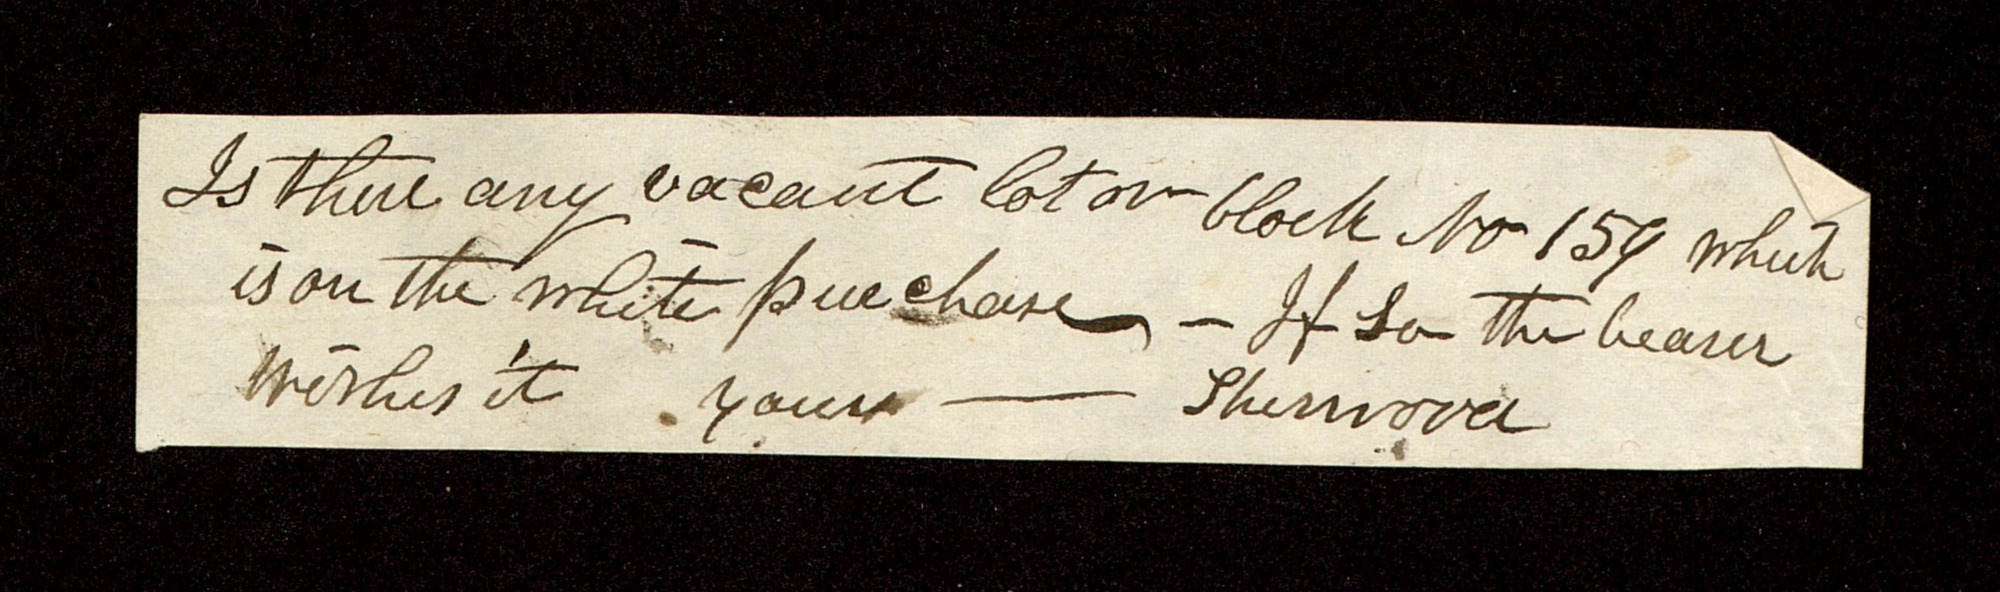 Is there any vacant lot on block No 159 which
is on the white purchase — If so the bearer
Wishes it yours — Sherwood